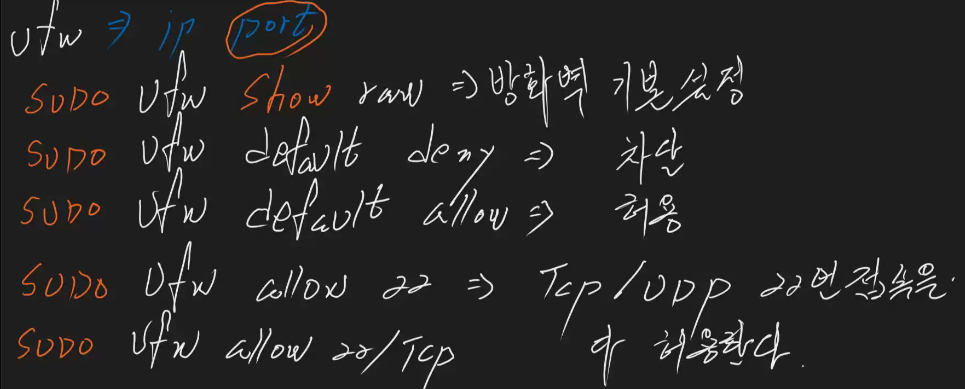 ufw => ip port
SUDO ufw show raw => 방화벽 기본설정
SUDO ufw default deny => 차단
SUDO ufw default allow => 허용
SUDO ufw allow 22 => Tcp/UDP 22번 접속을
SUDO ufw allow 22/Tcp 다 허용한다.